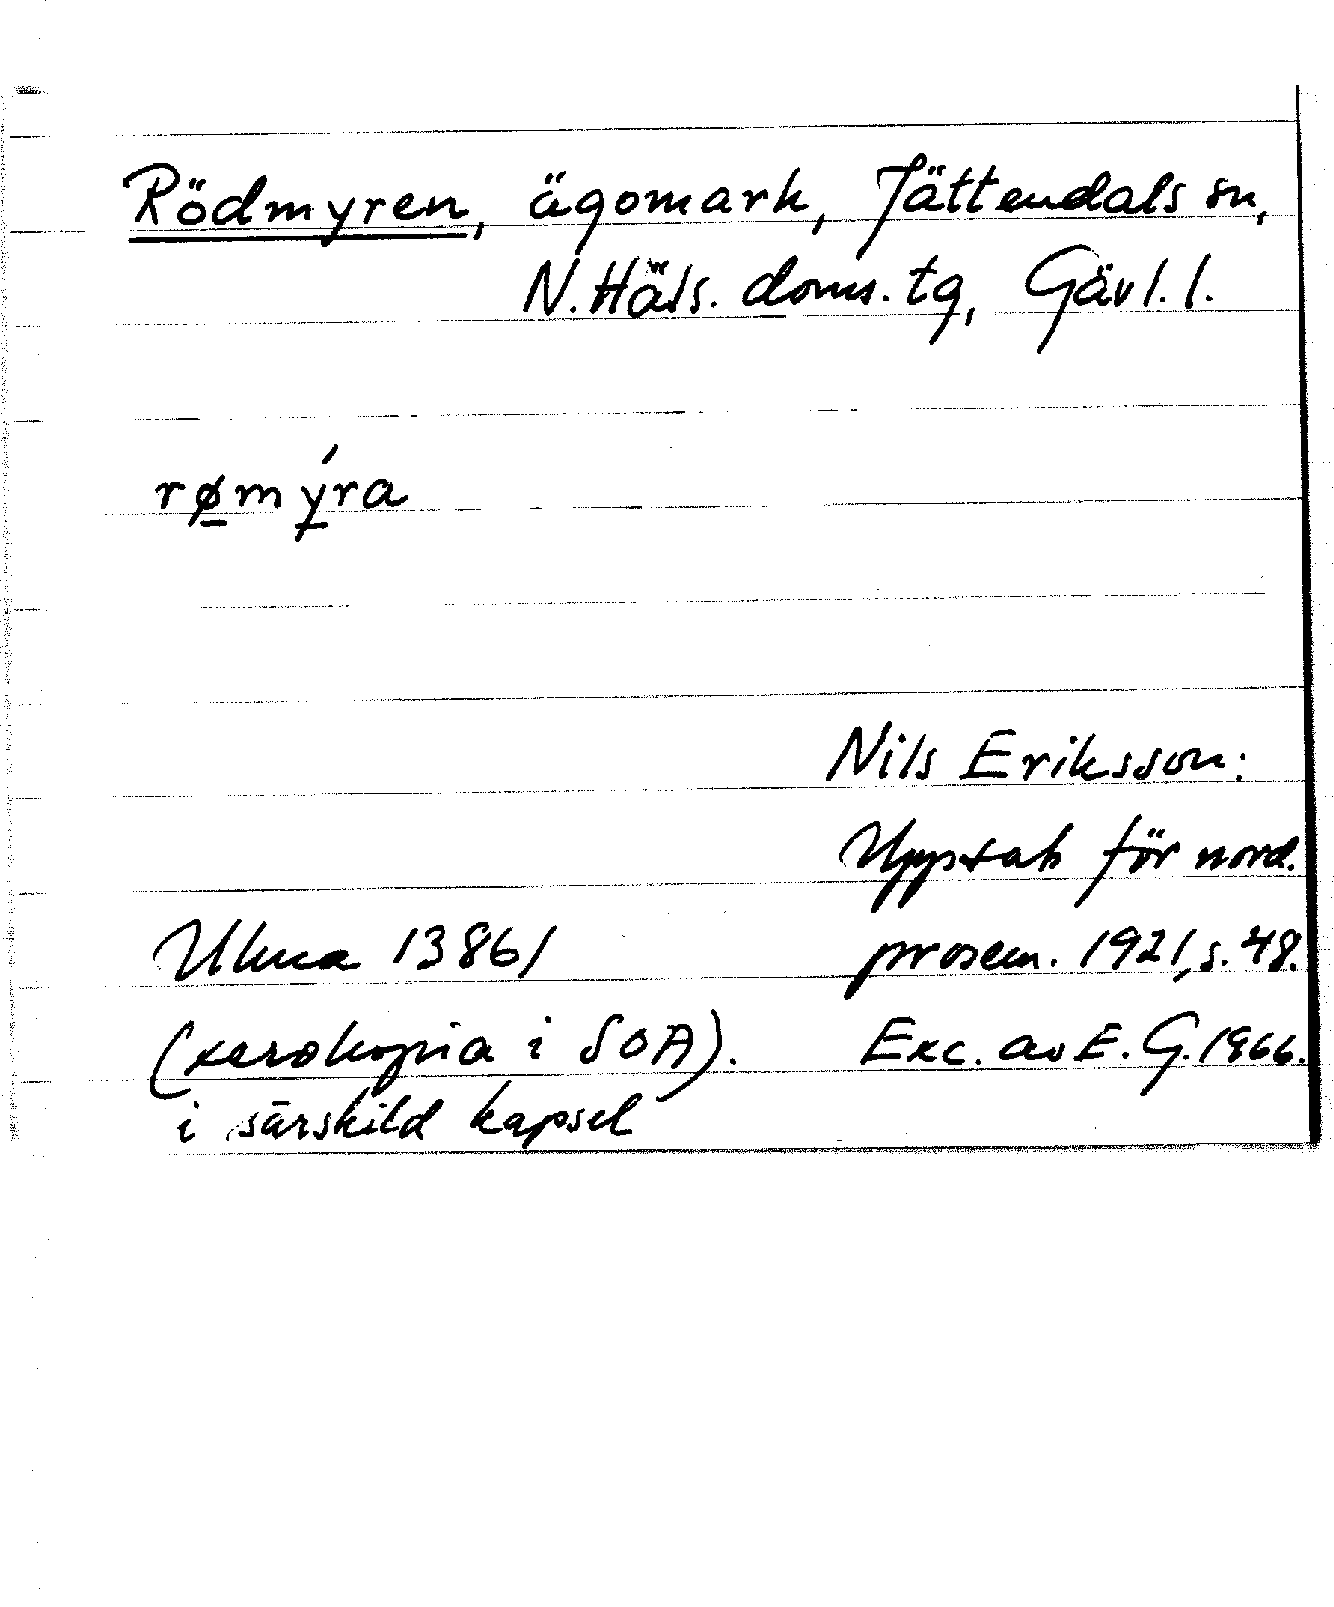 Rödmyren, ägomark, Jättendals sn,
N. Häls. doms. tg, Gävl. l.
rø̲mý̲ra
Nils Eriksson:
Uppsats för nord.
Ulma 13861 prosem. 1921, s. 48.
(xerokopia i SOA). Exc. av E. G. 1966.
i särskild kapsel